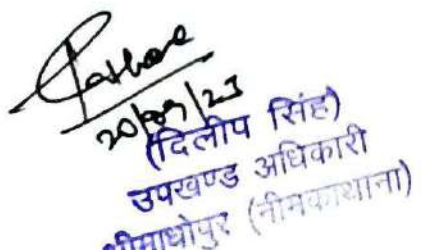 20/09/23
(दिलीप सिंह)
उपखण्ड अधिकारी
श्रीमाधोपुर (नीमकाथाना)